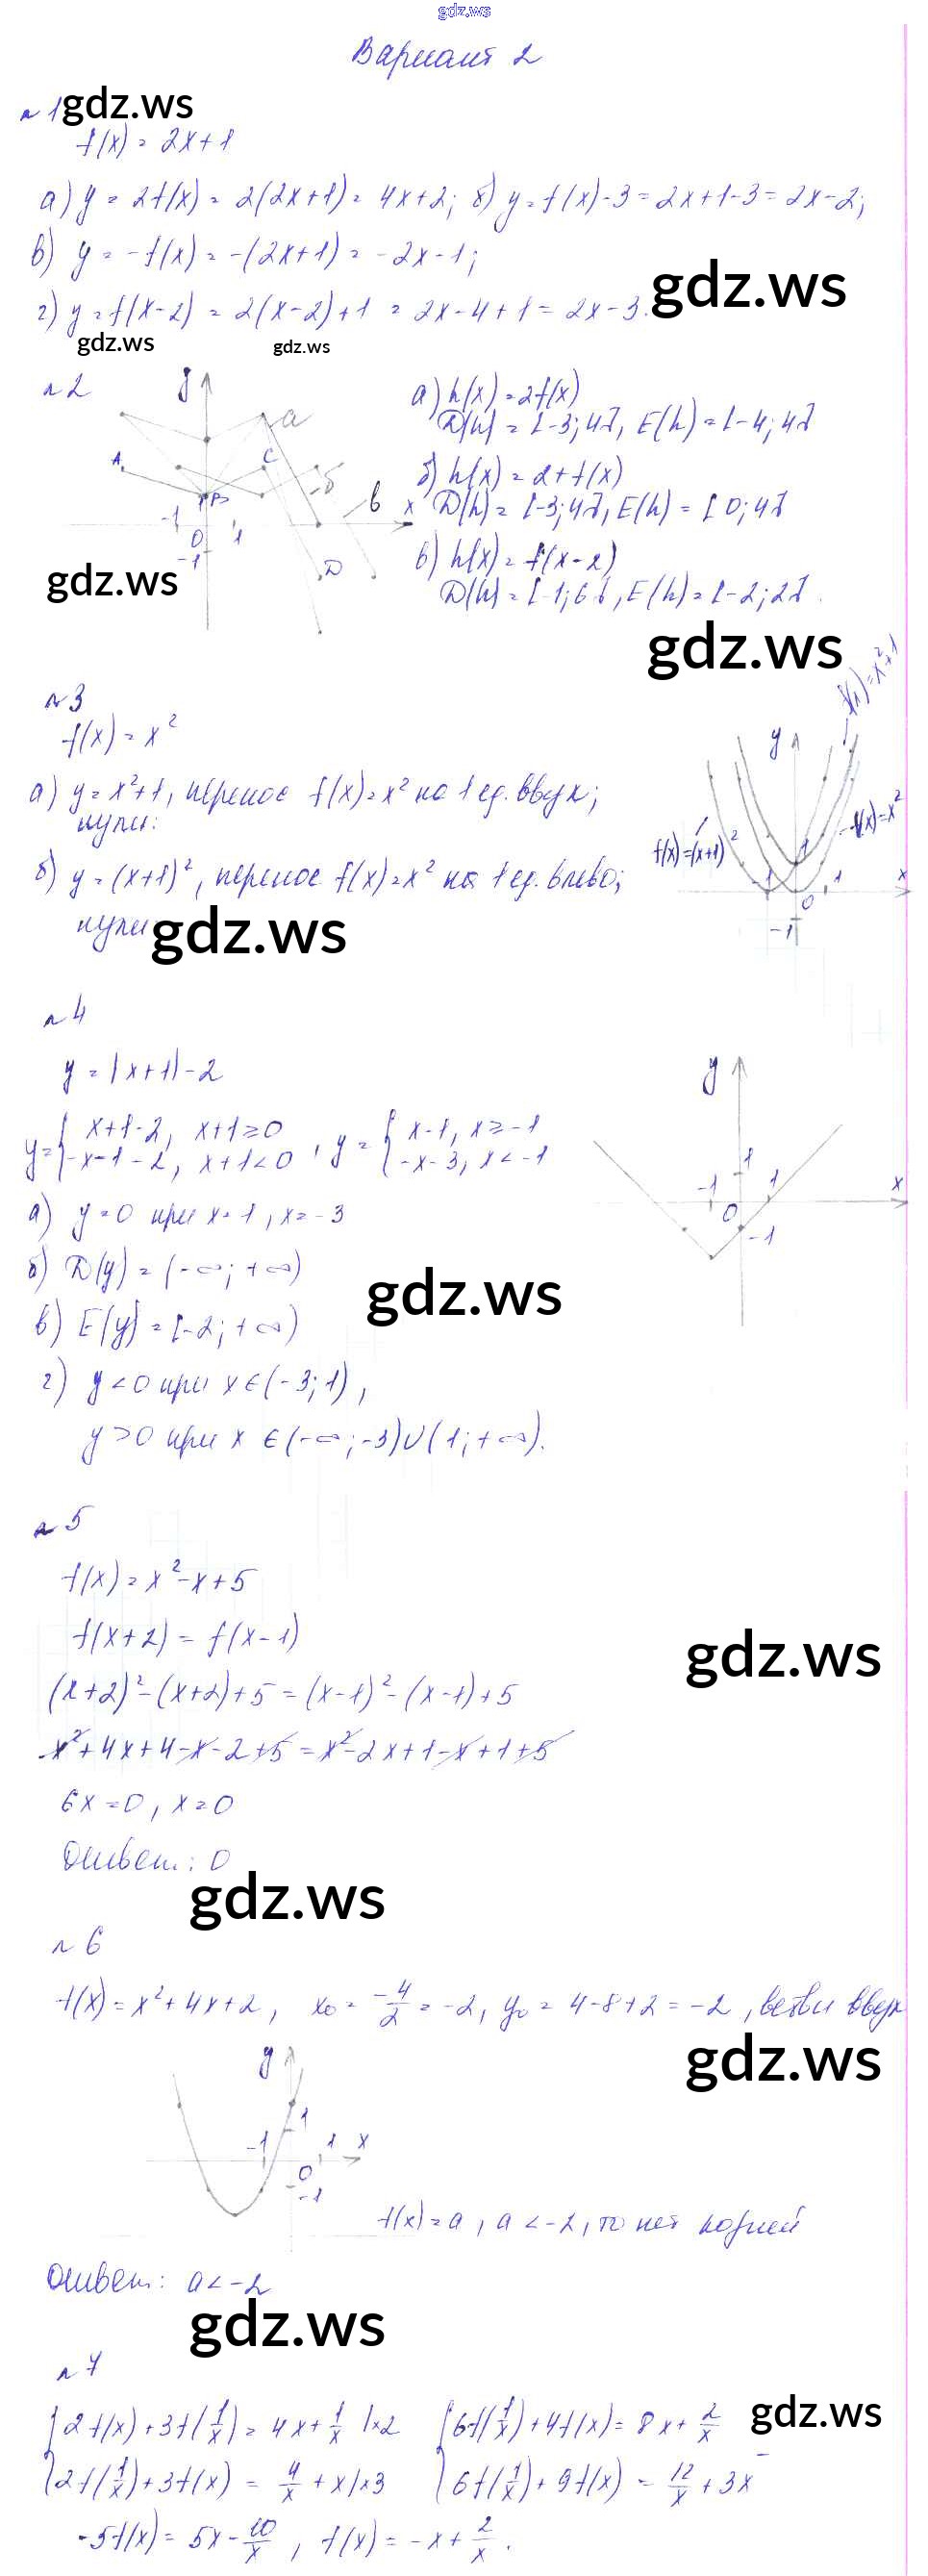 gdz.ws
Вариант 2
n 1 gdz.ws
f(x) = 2x+1
а) y = 2f(x) = 2(2x+1) = 4x+2; б) y = f(x)-3 = 2x+1-3 = 2x-2;
в) y = -f(x) = -(2x+1) = -2x-1;
gdz.ws
г) y = f(x-2) = 2(x-2)+1 = 2x-4+1 = 2x-3.
gdz.ws gdz.ws
n 2
y
а
A
C
B
б
в
x
-1
0
1
-1
D
а) h(x) = 2f(x)
D(h) = [-3; 4], E(h) = [-4; 4]
б) h(x) = 2+f(x)
D(h) = [-3; 4], E(h) = [0; 4]
в) h(x) = f(x-2)
D(h) = [-1; 6], E(h) = [-2; 2].
gdz.ws
gdz.ws
n 3
f(x) = x²
а) y = x²+1, перенос f(x) = x² на 1 ед. вверх;
нули:
б) y = (x+1)², перенос f(x) = x² на 1 ед. влево;
нули:
gdz.ws
f(x) = x²+1
y
f(x) = x²
f(x) = (x+1)²
1
-1
0
1
x
-1
n 4
y = |x+1|-2
y = { x+1-2, x+1≥0 , y = { x-1, x≥-1
-x-1-2, x+1<0 -x-3, x<-1
а) y = 0 при x = 1, x = -3
б) D(y) = (-∞; +∞)
gdz.ws
в) E(y) = [-2; +∞)
г) y < 0 при x ∈ (-3; 1),
y > 0 при x ∈ (-∞; -3)∪(1; +∞).
y
1
-1
1
x
0
-1
n 5
f(x) = x²-x+5
f(x+2) = f(x-1)
gdz.ws
(x+2)²-(x+2)+5 = (x-1)²-(x-1)+5
x²+4x+4-x-2+5 = x²-2x+1-x+1+5
6x = 0, x = 0
Ответ: 0
gdz.ws
n 6
f(x) = x²+4x+2, x₀ = -4/2 = -2, y₀ = 4-8+2 = -2, ветви вверх
gdz.ws
y
1
-1
1
x
0
-1
f(x) = a, a < -2, то нет корней
Ответ: a < -2
gdz.ws
n 7
{ 2f(x)+3f(1/x) = 4x+1/x |×2 { 6f(1/x)+4f(x) = 8x+2/x
gdz.ws
2f(1/x)+3f(x) = 4/x+x |×3 6f(1/x)+9f(x) = 12/x+3x -
-5f(x) = 5x-10/x, f(x) = -x+2/x.